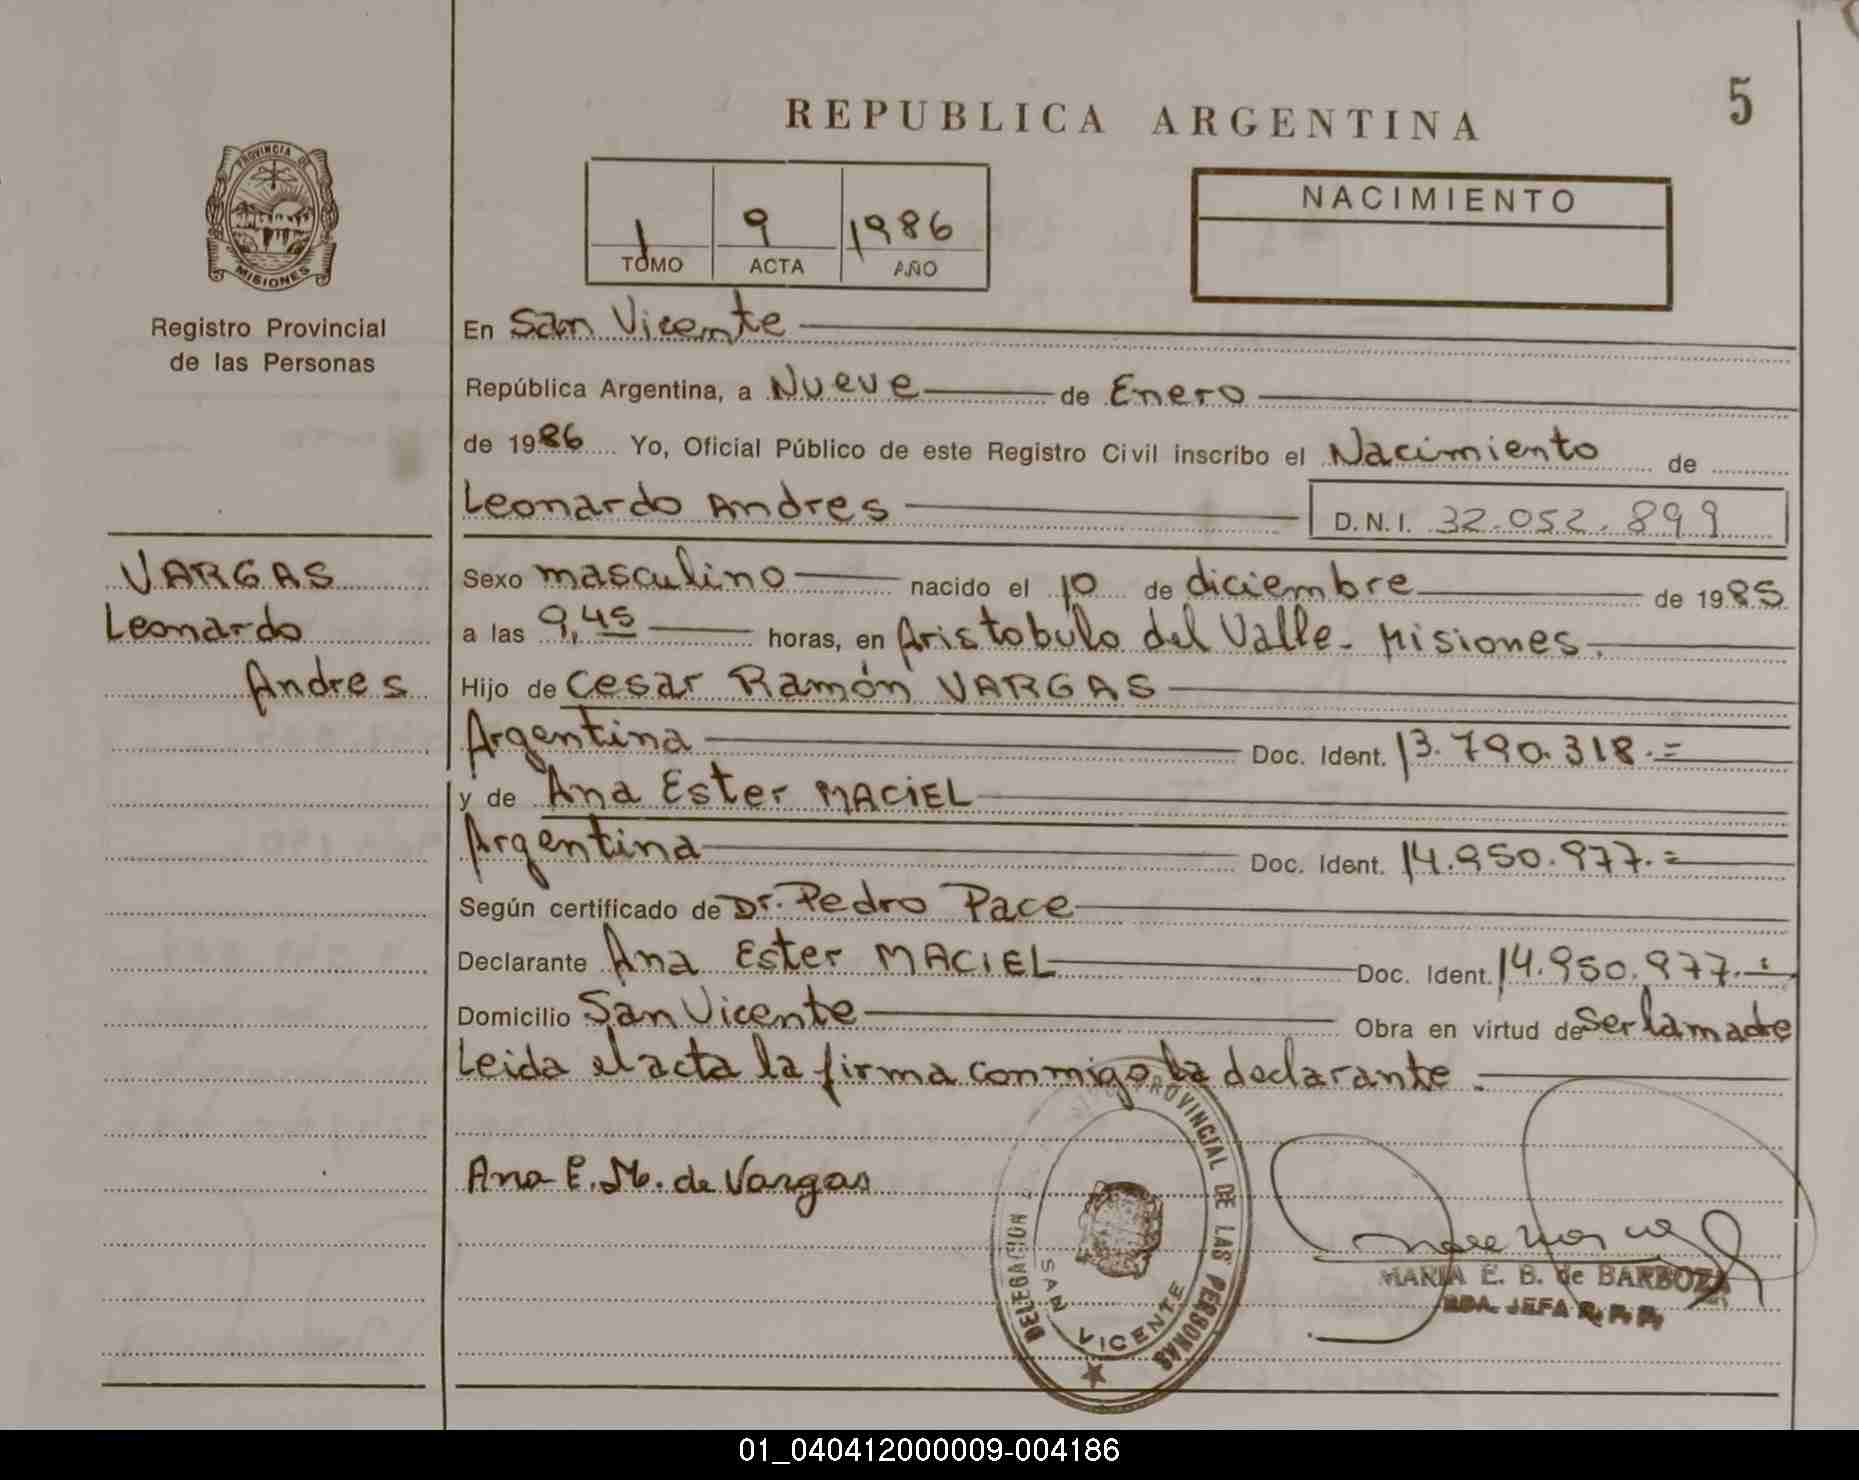 5
REPUBLICA ARGENTINA
PROVINCIA DE
MISIONES
Registro Provincial
de las Personas
1 9 1986
TOMO ACTA AÑO
NACIMIENTO
En San Vicente
República Argentina, a Nueve de Enero
de 1986 Yo, Oficial Público de este Registro Civil inscribo el Nacimiento de
Leonardo Andres D.N.I. 32.052.899
VARGAS
Leonardo
Andres
Sexo masculino nacido el 10 de diciembre de 1985
a las 9,45 horas, en Aristobulo del Valle - Misiones.
Hijo de Cesar Ramón VARGAS
Argentina Doc. Ident. 13.790.318.=
y de Ana Ester MACIEL
Argentina Doc. Ident. 14.950.977.=
Según certificado de Dr. Pedro Pace
Declarante Ana Ester MACIEL Doc. Ident. 14.950.977.=
Domicilio San Vicente Obra en virtud de Ser la madre
Leida el acta la firma conmigo la declarante.
Ana E. M. de Vargas
DELEGACION PROVINCIAL DE LAS PERSONAS
SAN VICENTE
MARIA E. B. de BARBOZA
JEFA R. P. P.
01_040412000009-004186